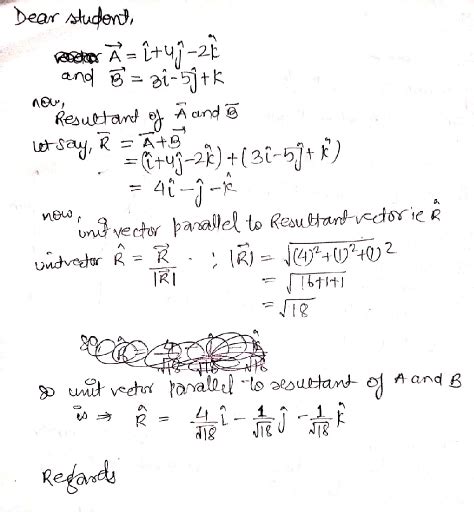 Dear student,
vector A⃗ = î+4ĵ-2k̂
and B⃗ = 3î-5ĵ+k
now,
Resultant of A⃗ and B⃗
let say, R⃗ = A⃗+B⃗
= (î+4ĵ-2k̂)+(3î-5ĵ+k̂)
= 4î-ĵ-k̂
now, unit vector parallel to Resultant vector ie R̂
unit vector R̂ = R⃗/|R⃗| ∵ |R⃗| = √(4)²+(1)²+(1)2
= √16+1+1
= √18
so
so unit vector parallel to resultant of A and B
is ⇒ R̂ = 4/√18 î - 1/√18 ĵ - 1/√18 k̂
Regards